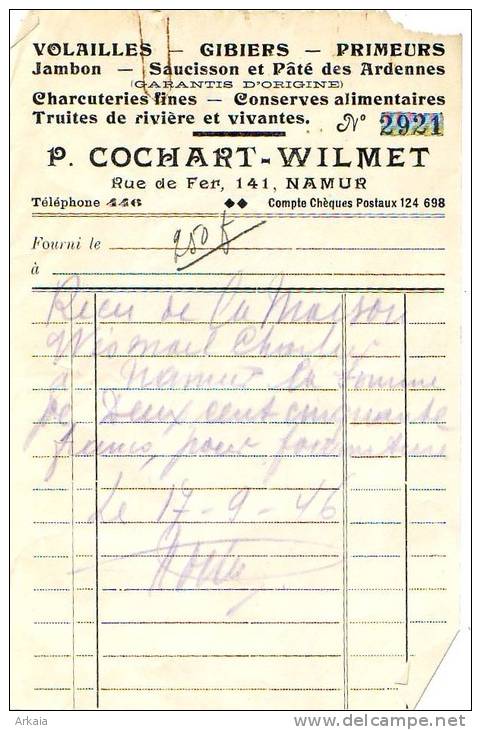 VOLAILLES — GIBIERS — PRIMEURS
Jambon — Saucisson et Pâté des Ardennes
(GARANTIS D'ORIGINE)
Charcuteries fines — Conserves alimentaires
Truites de rivière et vivantes. N° 2921
P. COCHART-WILMET
Rue de Fer, 141, NAMUR
Téléphone 446 ◆◆ Compte Chèques Postaux 124 698
Fourni le
250 f
à
Recu de la Maison
Charles
à Namur la somme
de Deux cent cinquante
francs, pour fourniture
Le 17-9-46
Arkaia
www.delcampe.net